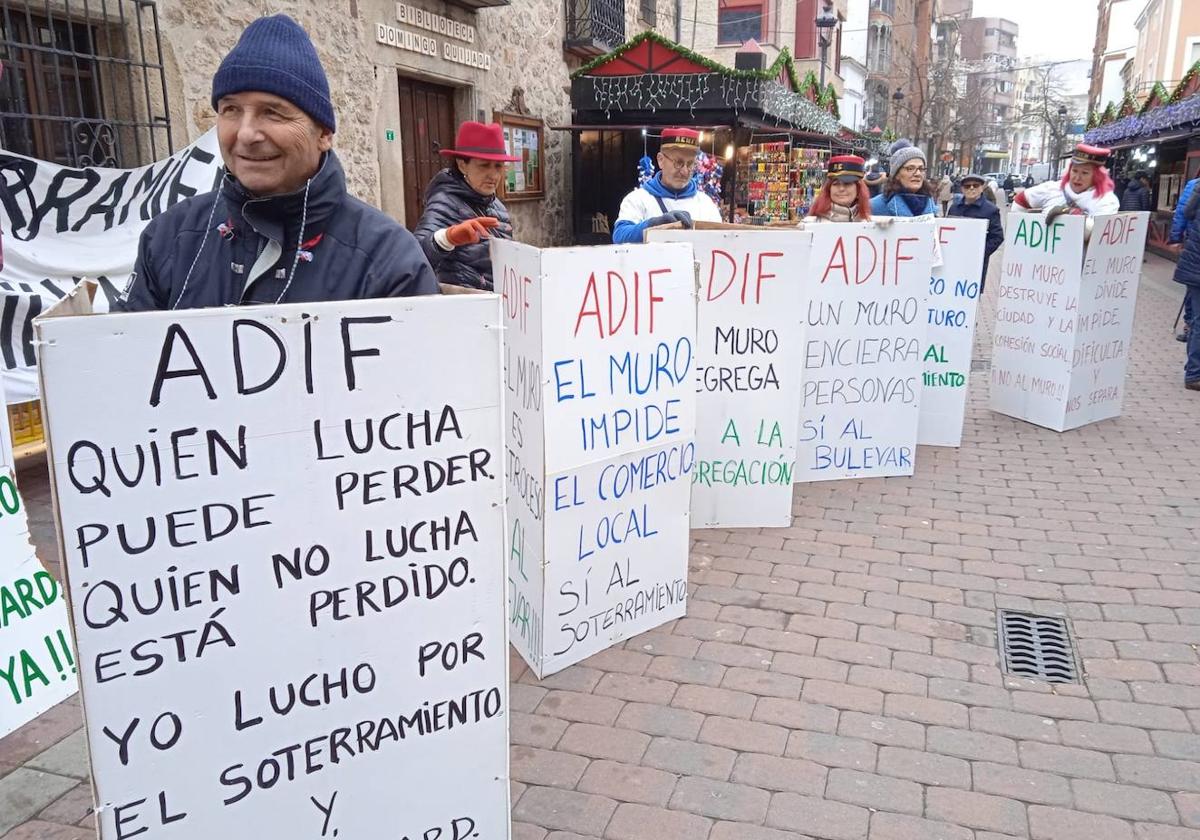 BIBLIOTECA
DOMINGO QUIJADA
ADIF
QUIEN LUCHA
PUEDE PERDER.
QUIEN NO LUCHA
ESTÁ PERDIDO.
YO LUCHO POR
EL SOTERRAMIENTO
Y
ARD.
YA!!
ADIF
EL MURO
ES
AL
ADIF
EL MURO
IMPIDE
EL COMERCIO
LOCAL
SÍ AL
SOTERRAMIENTO
ADIF
MURO
EGREGA
A LA
GREGACIÓN
ADIF
UN MURO
ENCIERRA
PERSONAS
SÍ AL
BULEVAR
F
RO NO
TURO.
AL
MIENTO.
ADIF
UN MURO
DESTRUYE LA
CIUDAD Y LA
COHESIÓN SOCIAL
¡¡NO AL MURO!!
ADIF
EL MURO
DIVIDE
IMPIDE,
DIFICULTA
Y
NOS SEPARA